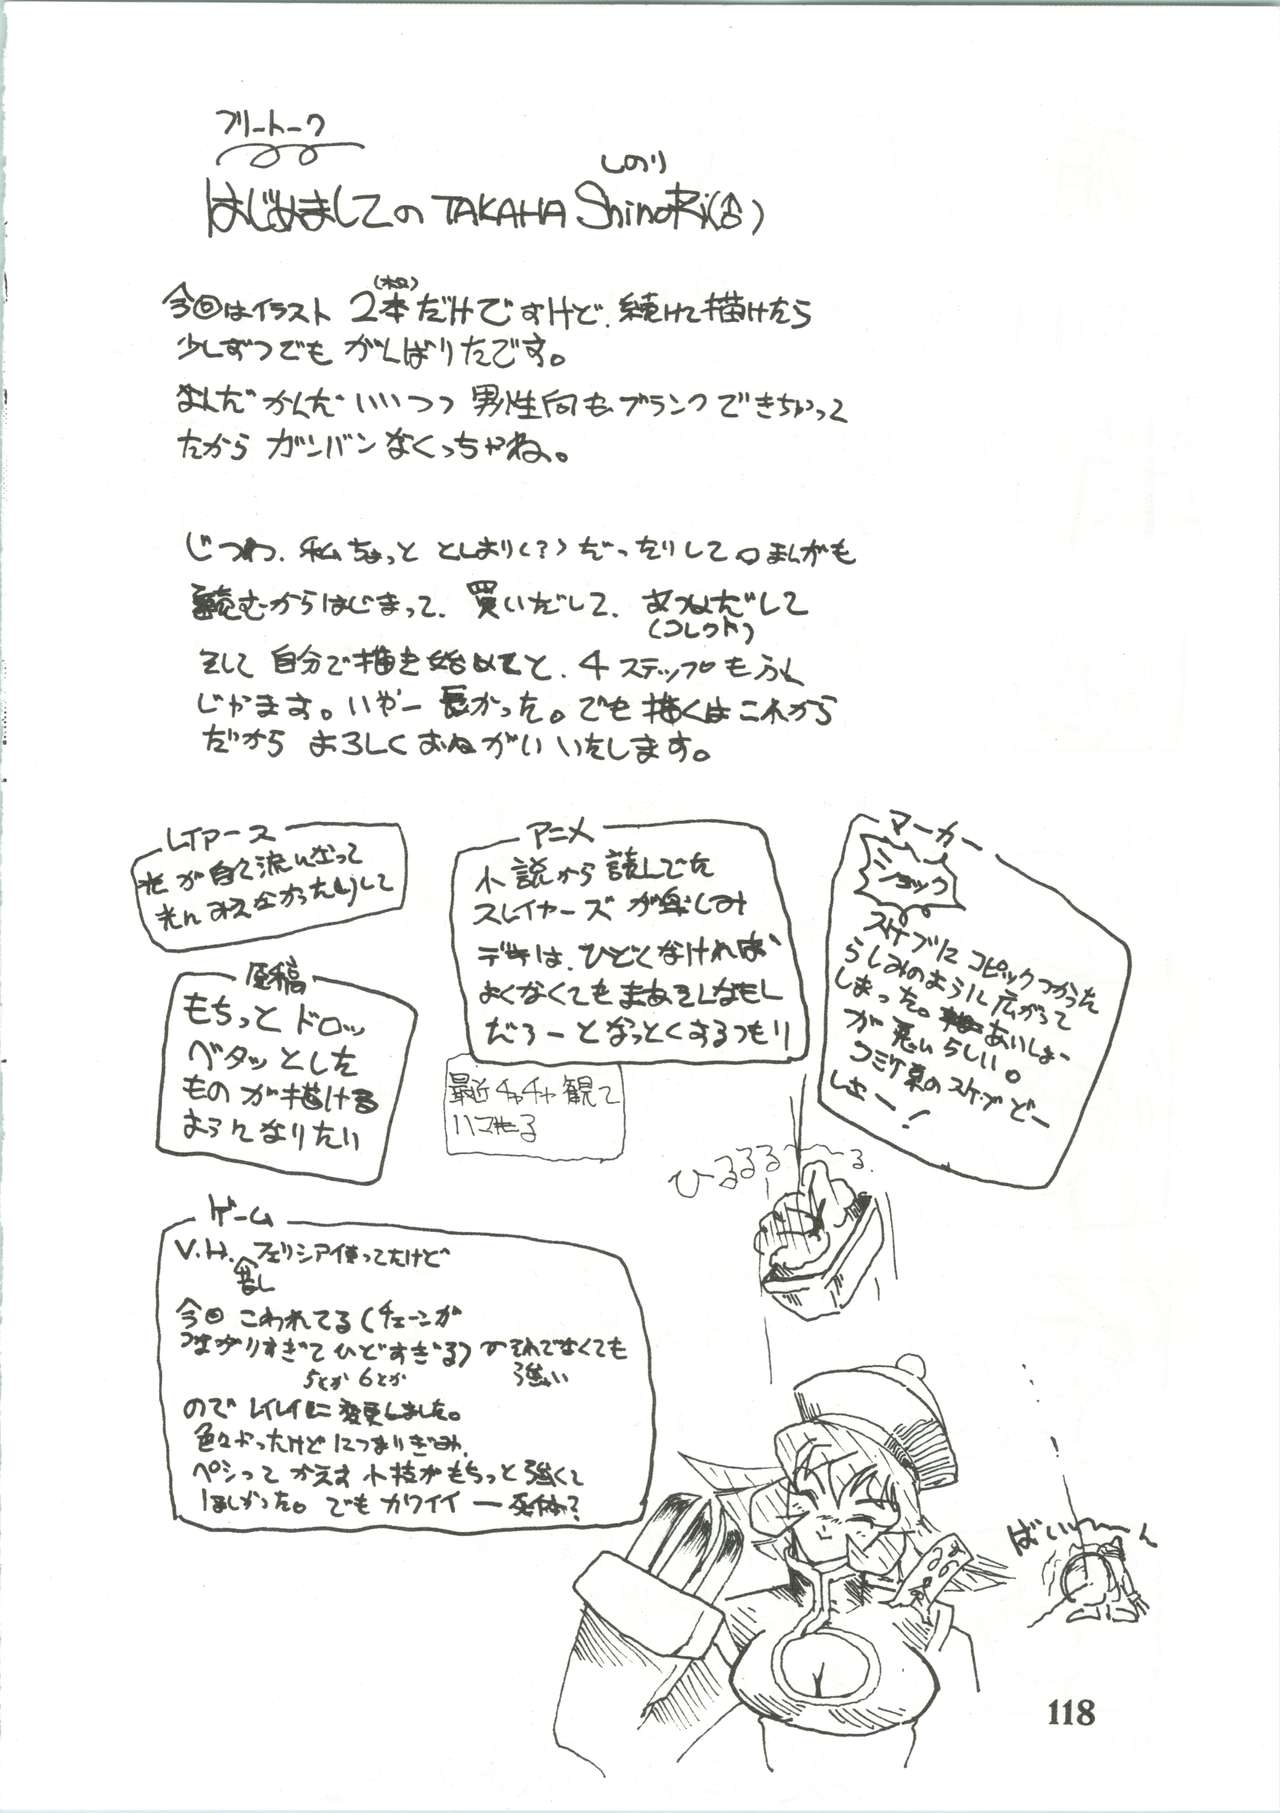 フリートーク
しのり
はじめましての TAKAHA ShinoRi(♂)
今回はイラスト 2本だけですけど、続けて描けたら
少しずつでも がんばりたです。
なんだかんだいいつつ 男性向もブランクできちゃって
たから ガンバンなくっちゃね。
じつわ、私ちょっと としより(?)だったりして。まんがも
読むからはじまって、買いだして、あつめだして
(コレクト)
そして 自分で描き始めてと、4ステップもふん
じゃます。いやー長かった。でも描くはこれから
だから よろしくおねがい いたします。
レイアース
光が白く流になって
光んみえなかったりして
アニメ
小説から読んでた
スレイヤーズが楽しみ
デキは、ひどくなければ
よくなくてもまあそんなもん
だろーとなっとくするつもり
マーカー
ショック
スケブにコピックつかった
らしみのように広がって
しまった。あいしょー
が悪いらしい。
コミケ京のスケブどー
しよー!
原稿
もちっとドロッ
ベタッとした
ものが描ける
ようになりたい
最近チャチャ観て
ハマもる
ひるるるー〜る
ゲーム
V.H. フェリシア使ってたけど
昔し
今回こわれてる(チェーンが
つながりすぎてひどすぎる)のそれでなくても
5とか6とか 強い
のでレイレイに変更しました。
色々かったけどにつまりぎみ
ペシってかえす小技がもちっと強くて
ほしかった。でもカワイイー死体?
ばい〜〜ん
118